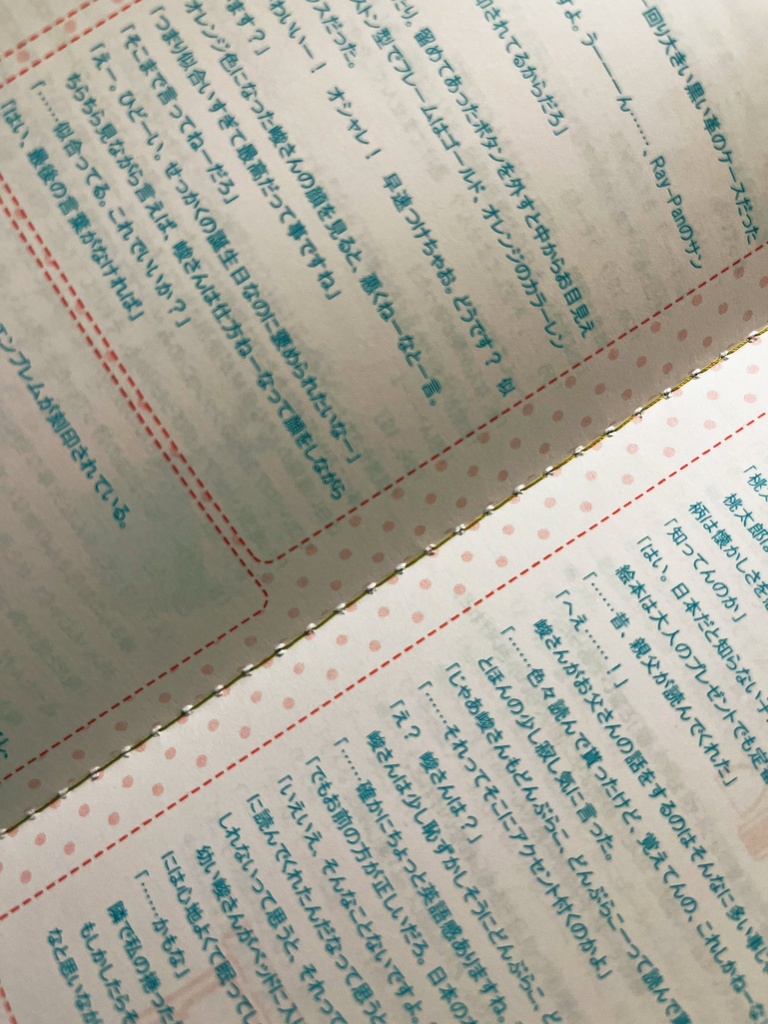 一回り大きい黒い革のケースだった
Ray-Panのサン
すよ。うーーーん……、
印されてるからだろ」
たり、留めてあったボタンを外すと中からお目見え
ストン型でフレームはゴールド、オレンジのカラーレン
ンズだった。
わいいー！　オシャレ！　早速つけちゃお。どうです？　似
ます？」
オレンジ色になった崚さんの顔を見ると、悪くねーなと一言。
「つまり似合いすぎて最高だって事ですね」
「そこまで言ってねーだろ」
「えー。ひどーい。せっかくの誕生日なのに褒められたいなー」
ちらちら見ながら言えば、崚さんは仕方ねーなって顔をしながら
「……似合ってる。これでいいか？」
「はい、最後の言葉がなければ」
エンブレムが刻印されている。
「桃太
桃太郎は
柄は懐かしさを
「知ってんのか」
「はい。日本だと知らない子
絵本は大人のプレゼントでも定番
「……昔、親父が読んでくれた」
「へえ……！」
崚さんがお父さんの話をするのはそんなに多い事じゃ
「……色々読んで貰ったけど、覚えてんの、これしかねーな
とほんの少し寂し気に言った。
「じゃあ崚さんもどんぶらこ、どんぶらこーって読んで
「……それってそこにアクセント付くのかよ」
「え？　崚さんは？」
崚さんは少し恥ずかしそうにどんぶらこ、ど
「……確かにちょっと英語感ありますね。
「でもお前の方が正しいだろ。日本の
「いえいえ、そんなことないですよ。
に読んでくれたんだなって思うと
しれないって思うと、それって
幼い崚さんがベッドに入
には心地よくて困ってし
「……かもな」
隣で私の擦った
もしかしたらそ
なと思いなが